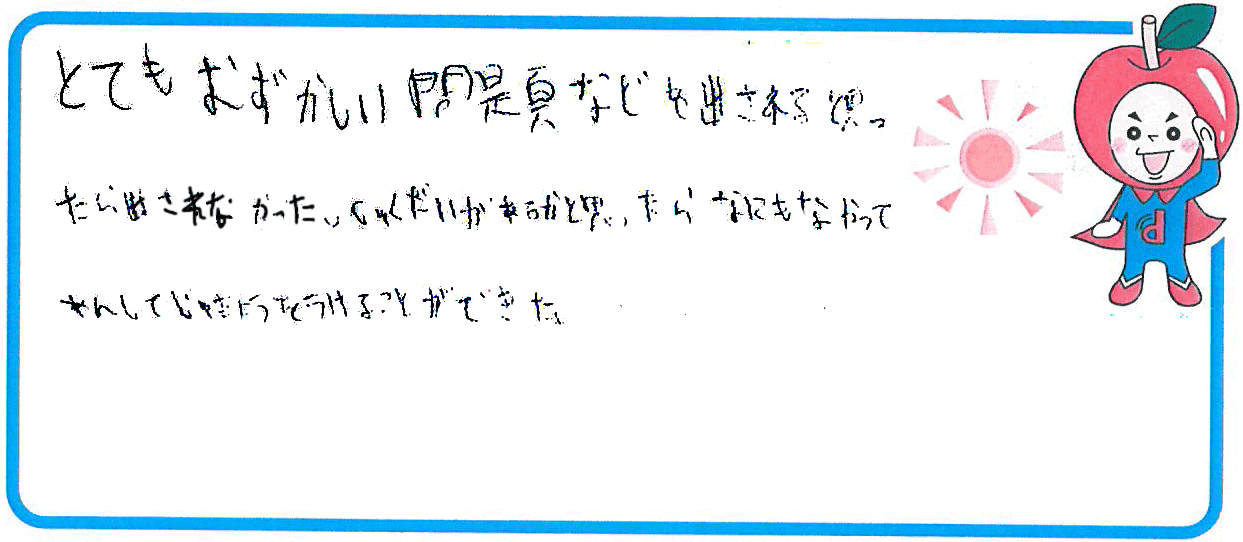 とてもむずかしい問題などを出されると思っ
たら出されなかった。しゅくだいがあるかと思ったらなにもなかって
あんしてじゅぎょうをうけることができた。